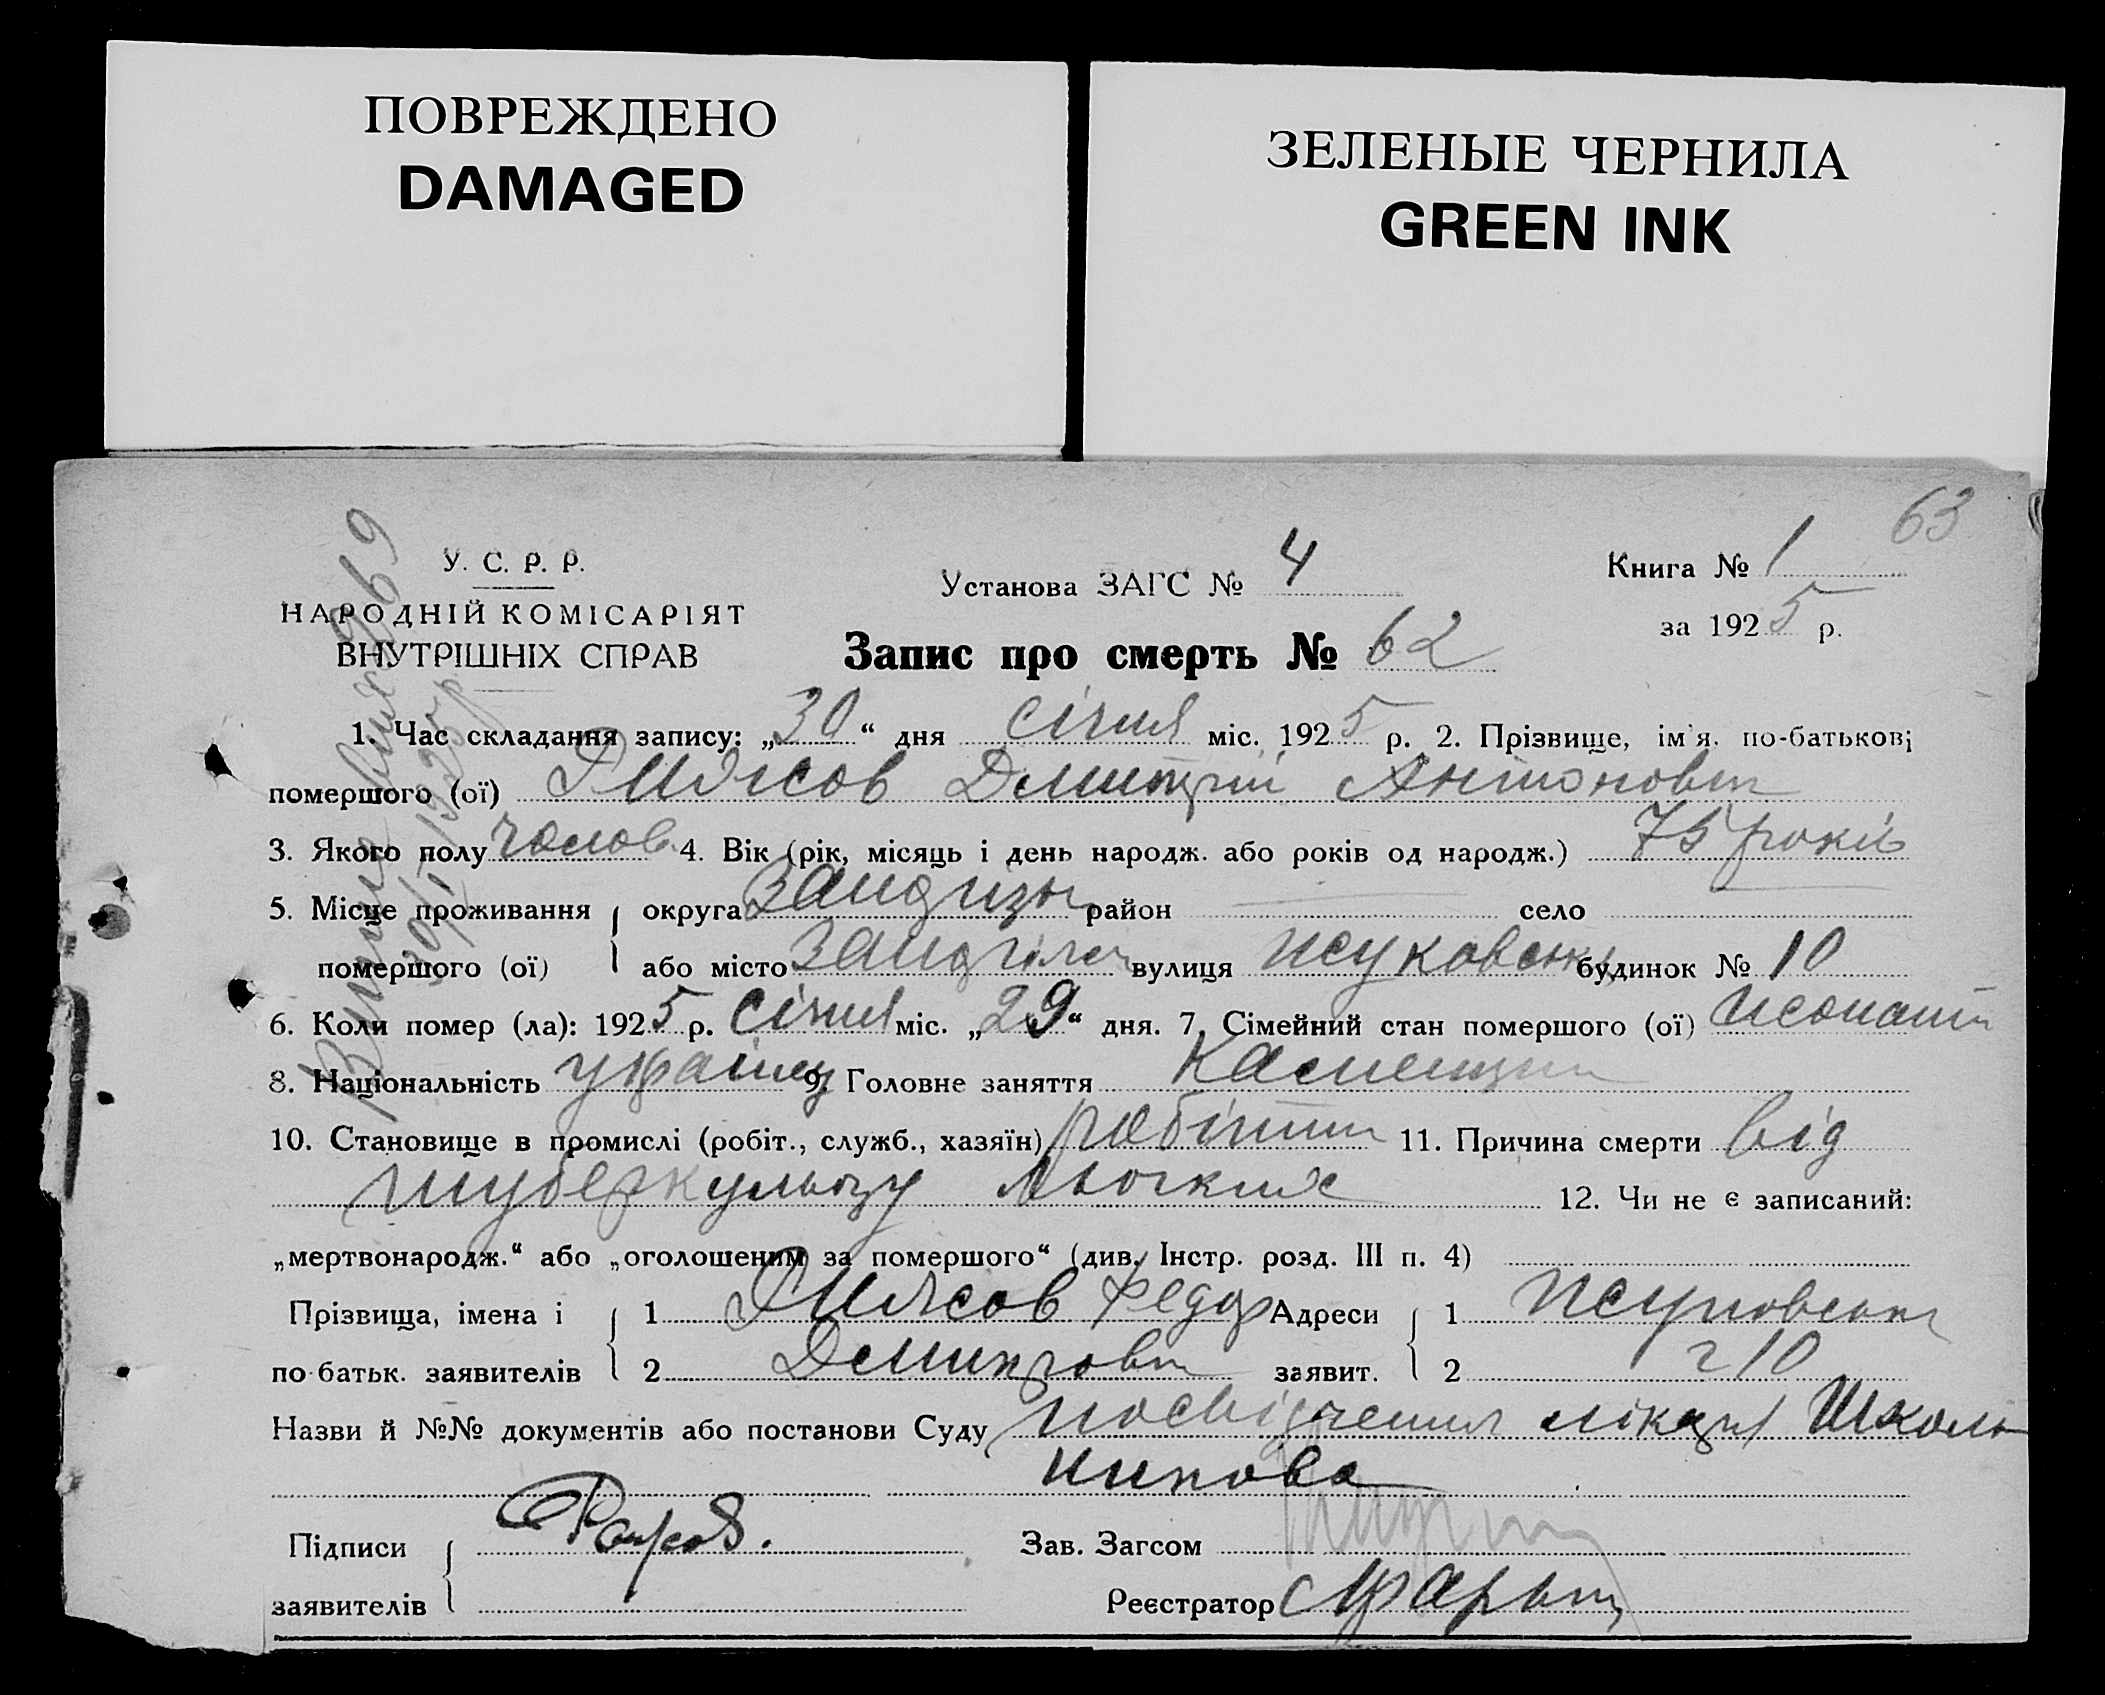 ПОВРЕЖДЕНО
DAMAGED
ЗЕЛЕНЫЕ ЧЕРНИЛА
GREEN INK
63
У. С. Р. Р.
НАРОДНІЙ КОМІСАРІЯТ
ВНУТРІШНІХ СПРАВ
Установа ЗАГС № 4
Книга № 1
за 1925 р.
Запис про смерть № 62
1. Час складання запису: „30“ дня січня міс. 1925 р. 2. Прізвище, ім'я, по-батькові
помершого (ої) Дмитрий Антонович
3. Якого полу чолов. 4. Вік (рік, місяць і день народж. або років од народж.) 75 років
5. Місце проживання округа район село
помершого (ої) або місто вулиця будинок № 10
6. Коли помер (ла): 1925 р. січня міс. „29“ дня. 7. Сімейний стан помершого (ої) жонатий
8. Національність українец 9. Головне заняття Каменщик
10. Становище в промислі (робіт., служб., хазяїн) робітник 11. Причина смерти від
туберкульозу льогких 12. Чи не є записаний:
„мертвонародж.“ або „оголошеним за помершого“ (див. Інстр. розд. III п. 4)
Прізвища, імена і 1 Федор Адреси 1
по-батьк. заявителів 2 Дмитрович заявит. 2 10
Назви й №№ документів або постанови Суду посвідчення лікаря Школь
никова
Підписи
заявителів
Зав. Загсом
Реєстратор